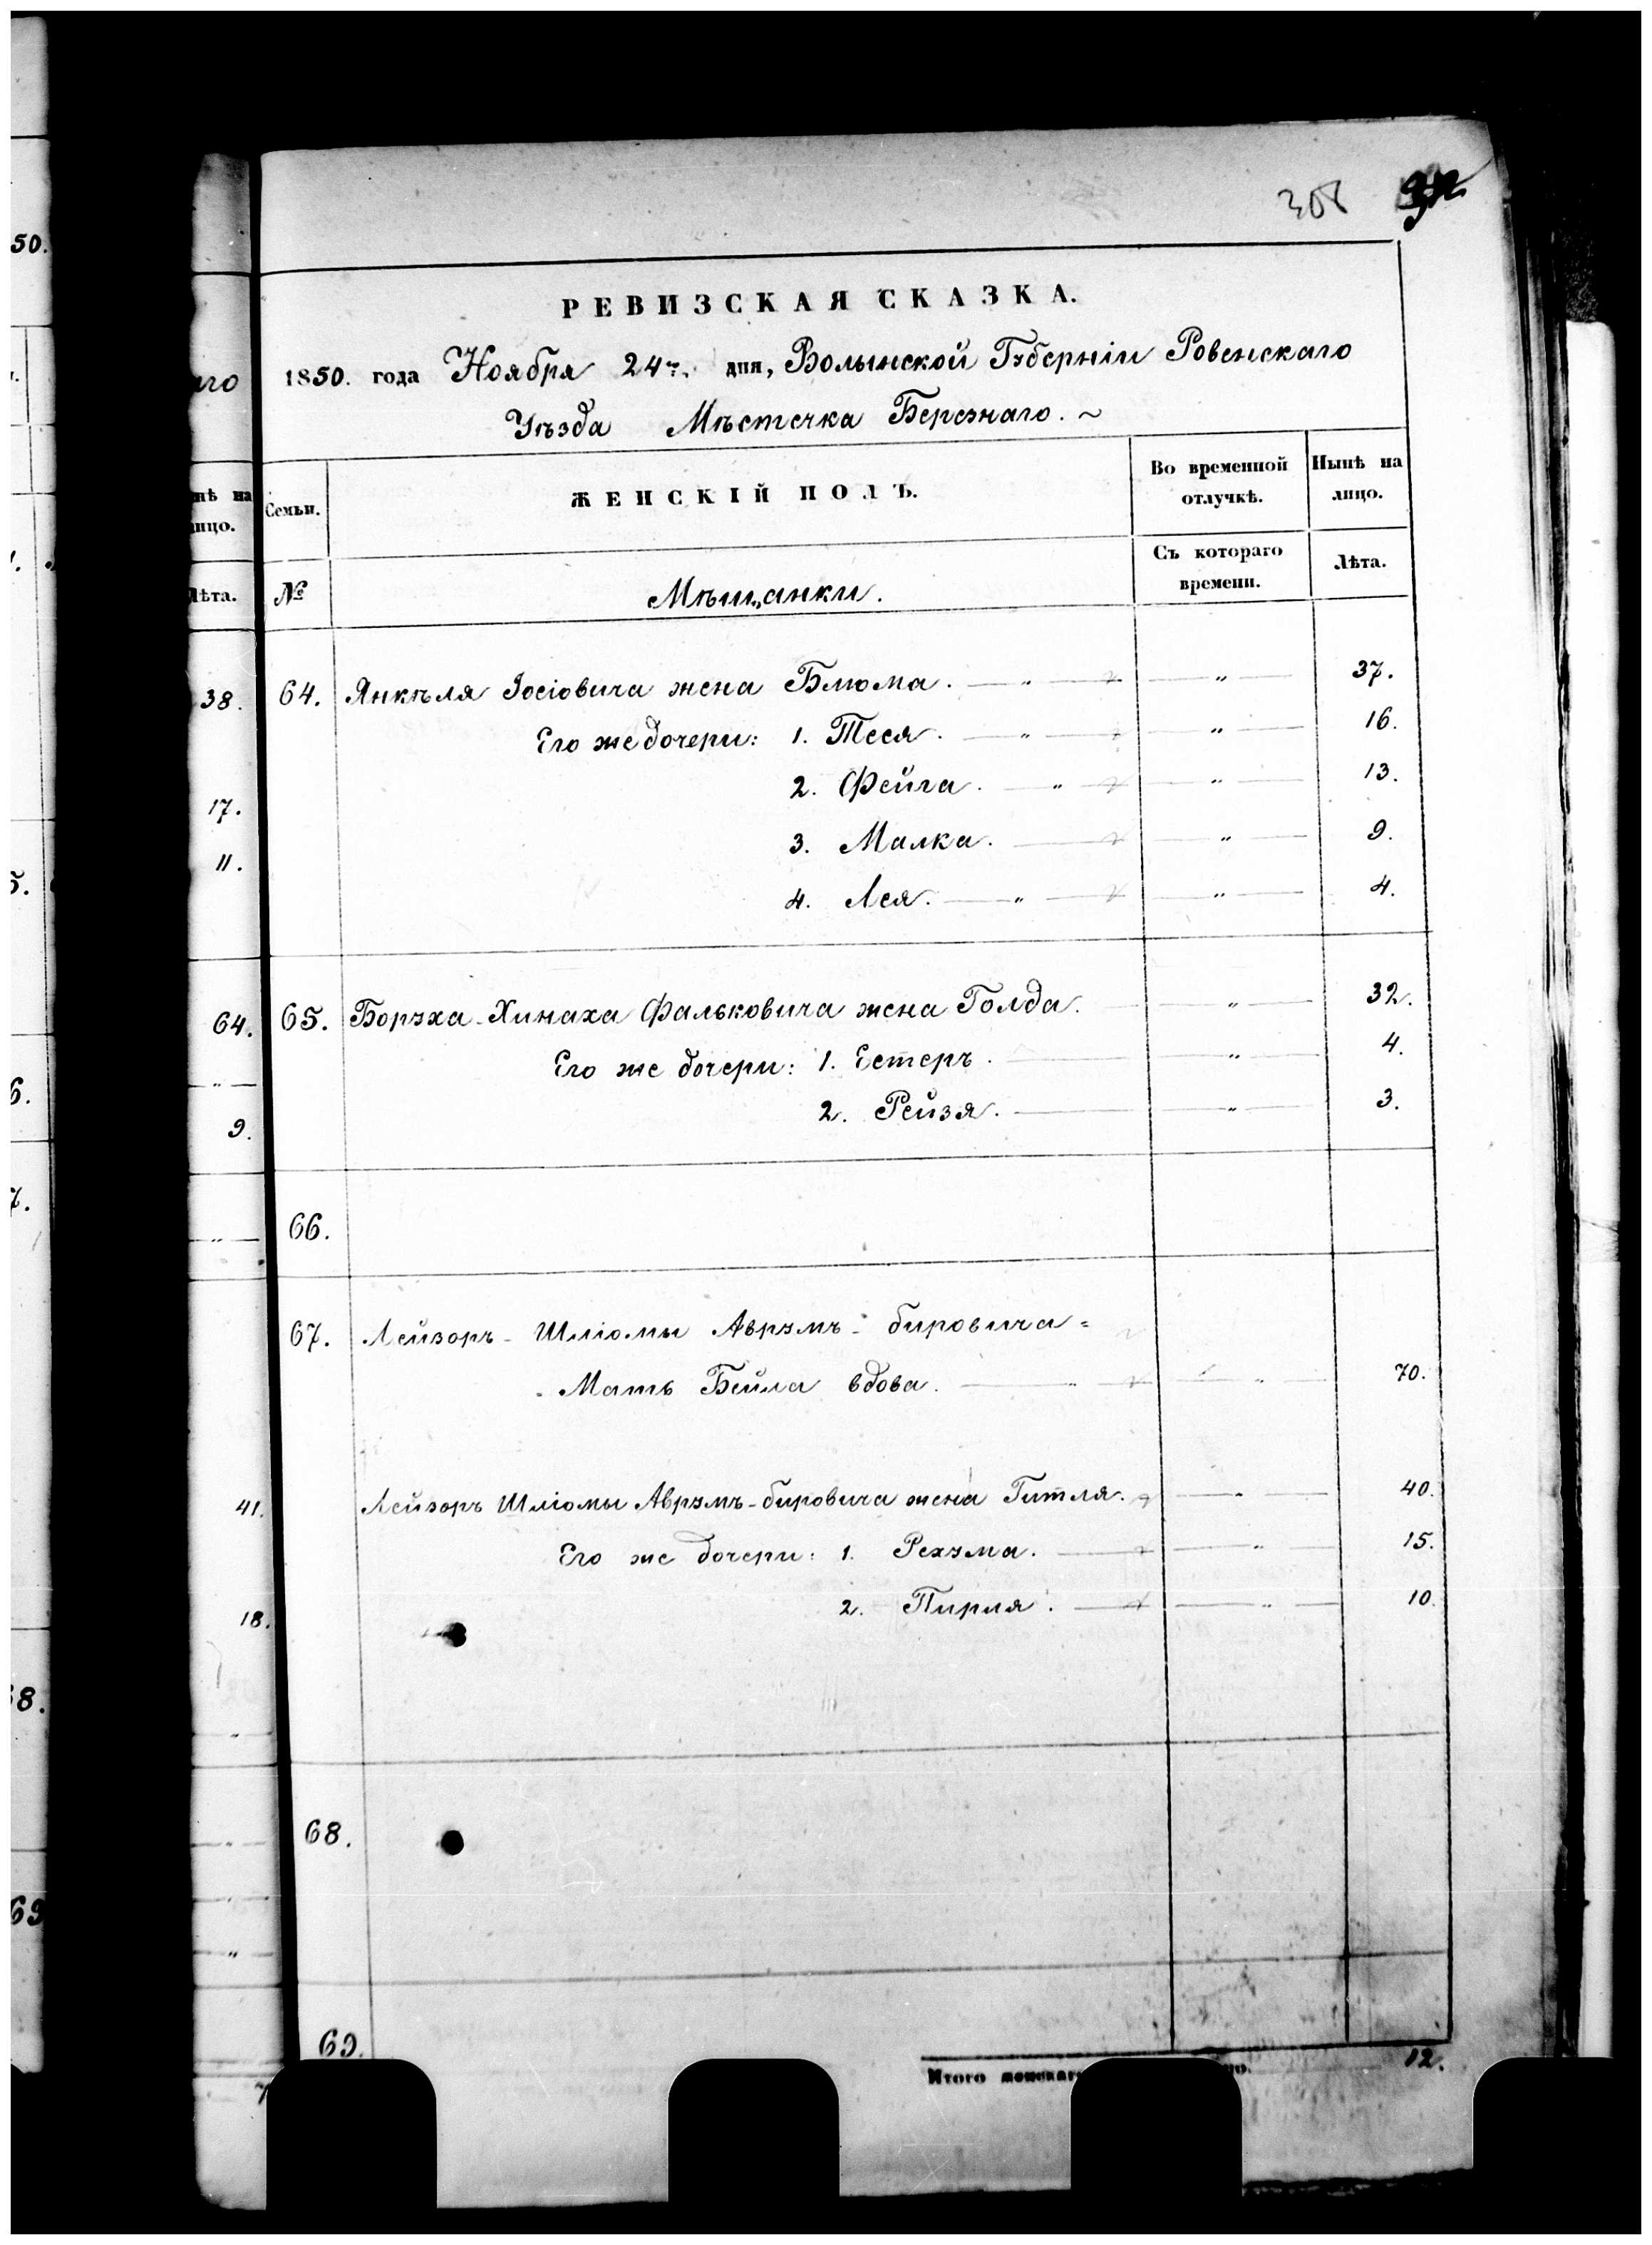 308
РЕВИЗСКАЯ СКАЗКА.
1850. года Ноября 24го дня, Волынской Губерніи Ровенскаго
Уѣзда Мѣстечка Березнаго. ~
Семьи. ЖЕНСКІЙ ПОЛЪ. Во временной отлучкѣ. Нынѣ на лицо.
№ Мѣщанки. Съ котораго времени. Лѣта.
64. Янкѣля Іосіовича жена Блюма. — „ — „ — 37.
Его же дочери: 1. Теся. — „ — „ — 16.
2. Фейга. — „ — „ — 13.
3. Малка. — „ — 9.
4. Лея. — „ — „ — 4.
65. Борѹха-Хинаха Фальковича жена Голда. — „ — 32.
Его же дочери: 1. Естеръ. — „ — 4.
2. Рейзя. — „ — 3.
66.
67. Лейзоръ-Шліомы Аврумъ-бировича =
Мать Бейла вдова. — „ — „ — 70.
Лейзоръ Шліомы Аврумъ-бировича жена Гитля. — „ — 40.
Его же дочери: 1. Рехума. — „ — 15.
2. Пирля. — „ — 10.
68.
69.
Итого женскаго 12.
50.
аго
нѣ на
лицо.
Лѣта.
38.
17.
11.
64.
9.
41.
18.